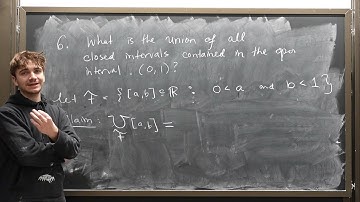 6. What is the union of all
closed intervals contained in the open
interval (0,1)?
let F = { [a,b] ⊆ ℝ : 0 < a and b < 1 }
laim: ⋃ [a,b] =
F